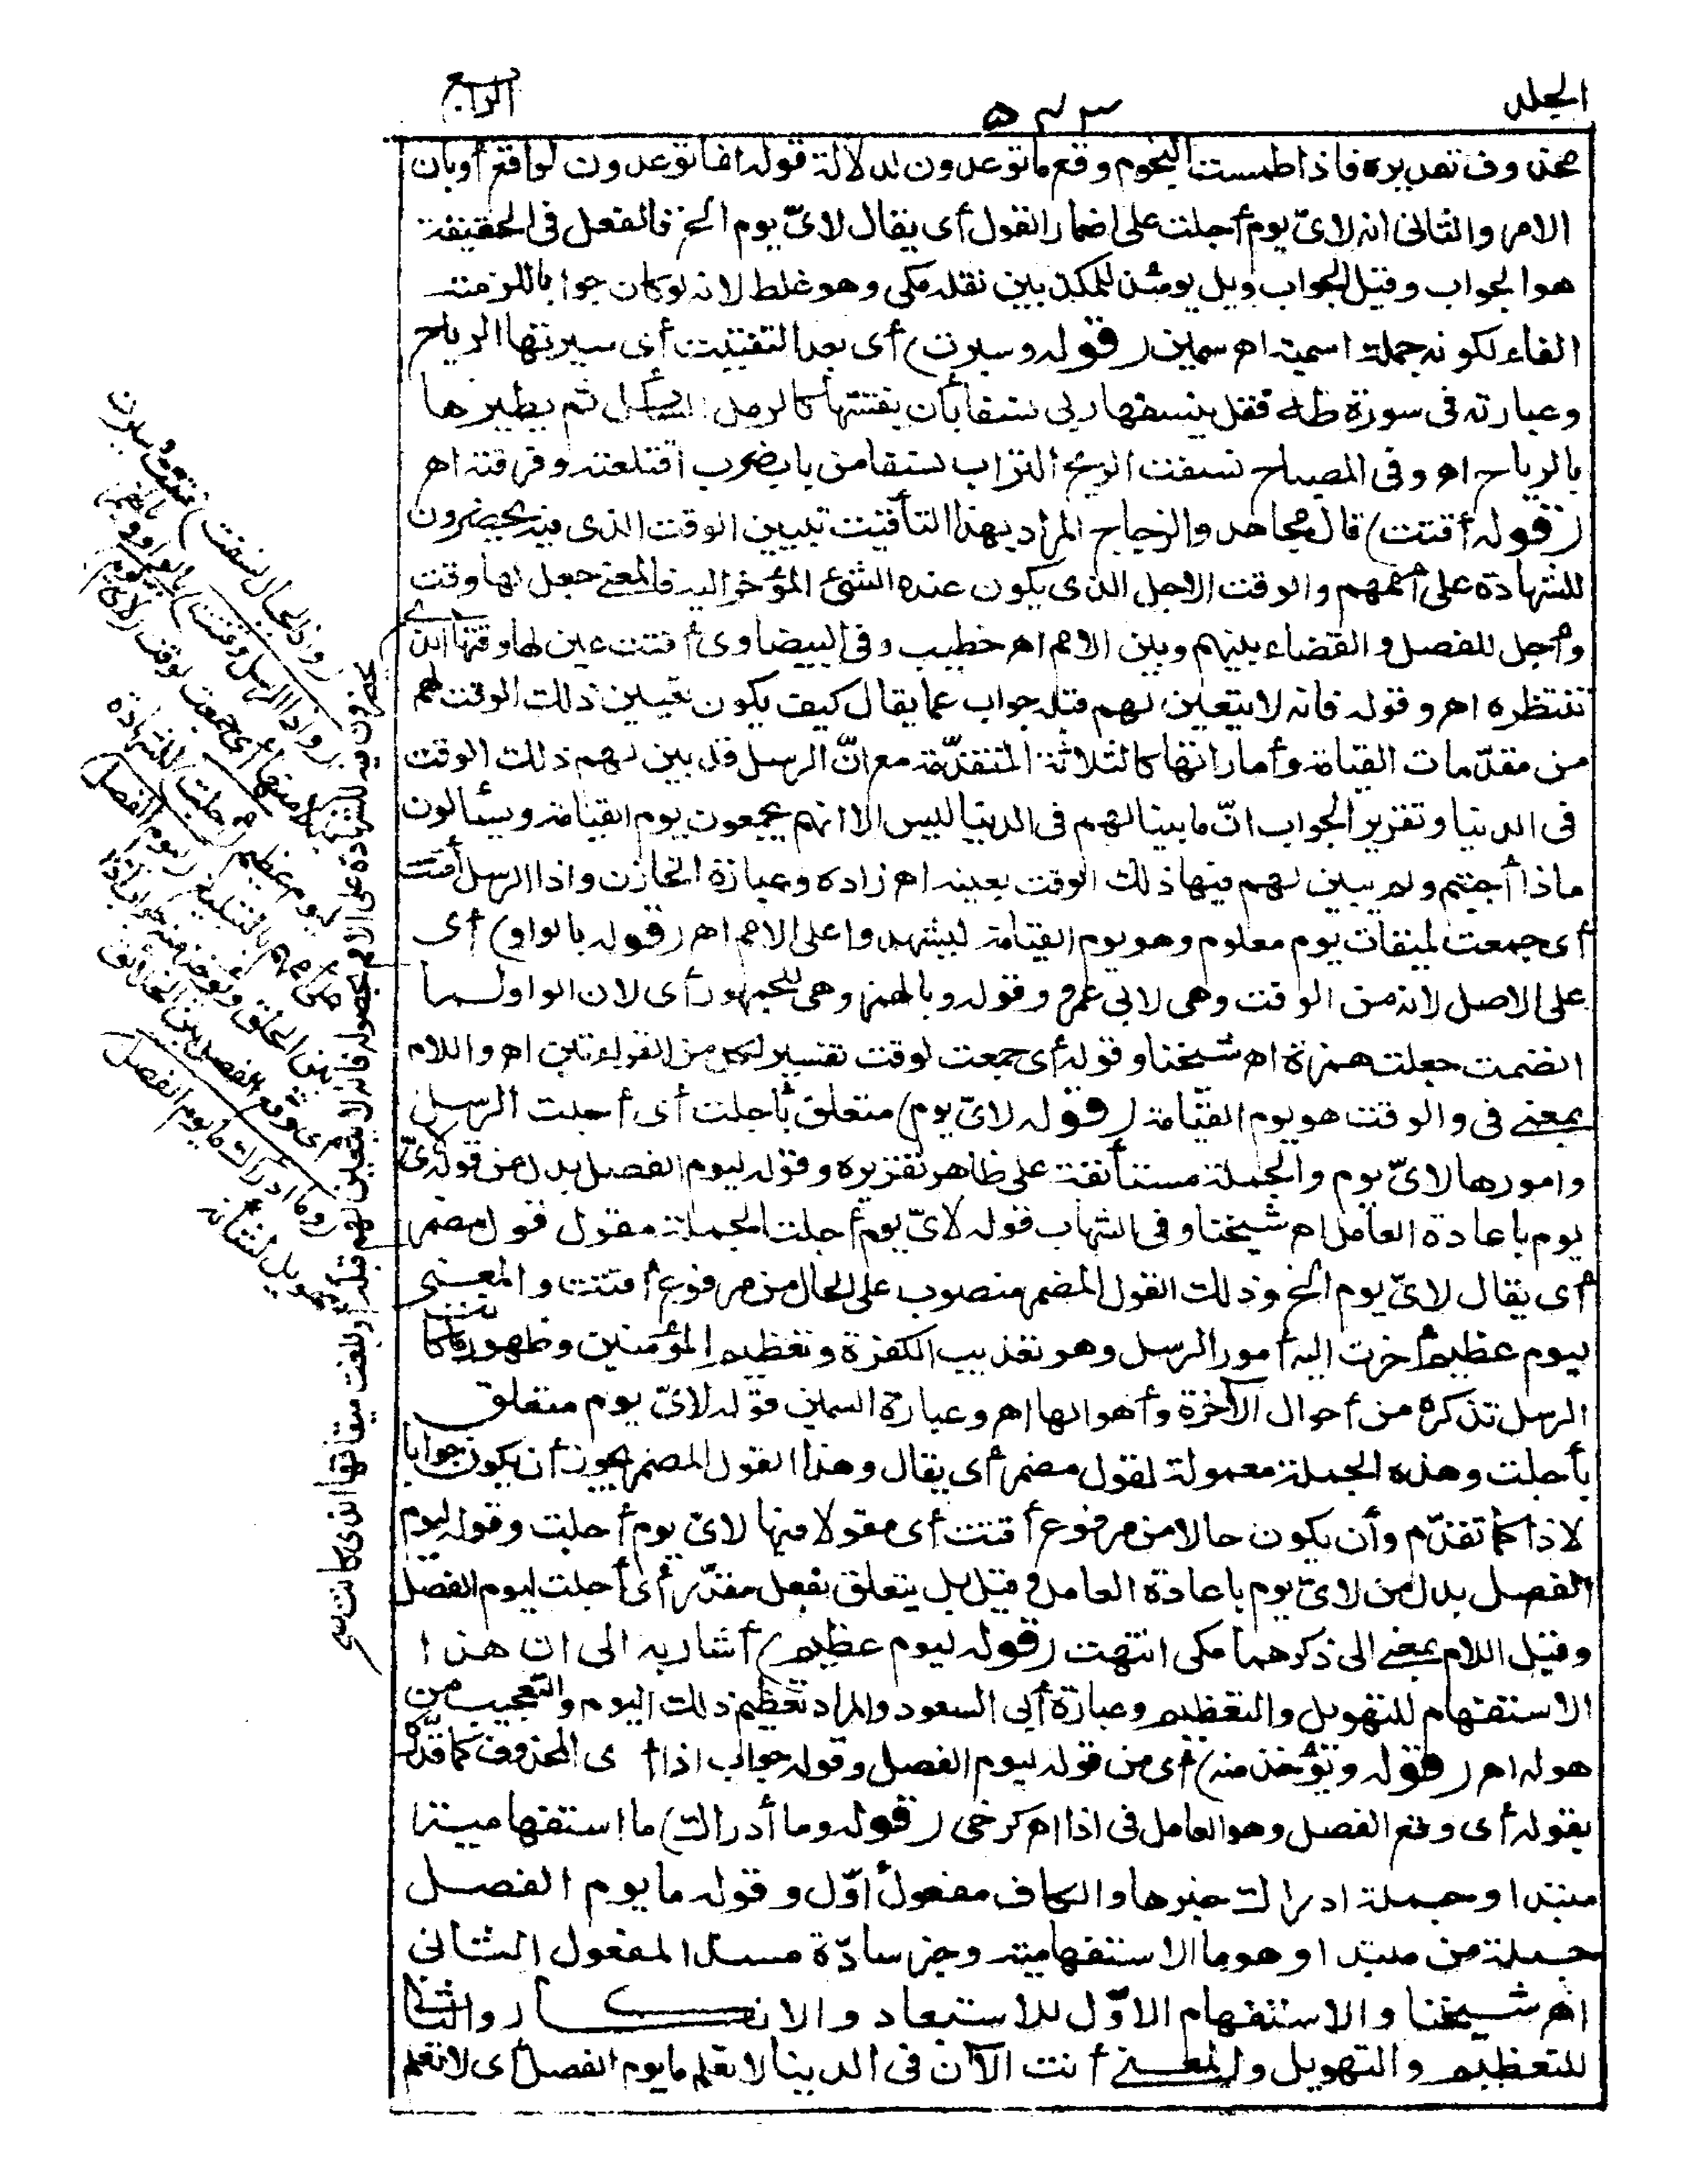 الجلد
٥٤٣
الرابع
محذوف تقديره فاذا طمست النجوم وقع ما توعدون لدلالة قوله انما توعدون لواقع أو بان
الامر والثانى انه لاىّ يوم أجلت على اضمار القول أى يقال لاىّ يوم الخ فالفعل فى الحقيقة
هو الجواب وقيل الجواب ويل يومئذ للمكذبين نقله مكى وهو غلط لانه لو كان جوابا للزمته
الفاء لكونه جملة اسمية اهـ سمين (قوله وسيرت) أى بعد التفتيت أى سيرتها الرياح
وعبارته فى سورة طه فقل ينسفها ربى نسفا بأن يفتتها كالرمل السائل ثم يطيرها
بالرياح اهـ وفى المصباح نسفت الريح التراب نسفا من باب ضرب اقتلعته وفرقته اهـ
(قوله أقتت) قال مجاهد والزجاج المراد بهذا التأقيت تبيين الوقت الذى فيه يحضرون
للشهادة على أممهم والوقت الاجل الذى يكون عنده الشئ المؤخر اليه فالمعنى جعل لها وقت
وأجل للفصل والقضاء بينهم وبين الامم اهـ خطيب وفى البيضاوى أقتت عين لها وقتها الذى
تنتظره اهـ وقوله فانه لا يتعين لهم قبله جواب عما يقال كيف يكون تعيين ذلك الوقت لهم
من مقدّمات القيامة وأماراتها كالثلاثة المتقدّمة مع انّ الرسل قد بين لهم ذلك الوقت
فى الدنيا وتقرير الجواب انّ ما بينا لهم فى الدنيا ليس الا انهم يجمعون يوم القيامة ويسألون
ماذا أجبتم ولم يبين لهم فيها ذلك الوقت بعينه اهـ زاده وعبارة الخازن واذا الرسل أقتت
أى جمعت لميقات يوم معلوم وهو يوم القيامة ليشهدوا على الامم اهـ (قوله بالواو) أى
على الاصل لانه من الوقت وهى لابى عمرو وقوله وبالهمز وهى للجمهور أى لان الواو لما
انضمت جعلت همزة اهـ شيخنا وقوله أى جمعت لوقت تفسير لكل من القراءتين اهـ واللام
بمعنى فى والوقت هو يوم القيامة (قوله لاىّ يوم) متعلق بأجلت أى أجلت الرسل
وامورها لاىّ يوم والجملة مستأنفة على ظاهر تقريره وقوله ليوم الفصل بدل من قوله لاىّ
يوم باعادة العامل اهـ شيخنا وفى الشهاب قوله لاىّ يوم أجلت الجملة مقول قول مضمر
أى يقال لاىّ يوم الخ وذلك القول المضمر منصوب على الحال من مرفوع أقتت والمعنى
ليوم عظيم أخرت اليه أمور الرسل وهو تعذيب الكفرة وتعظيم المؤمنين وظهور ما كانت
الرسل تذكره من أحوال الآخرة وأهوالها اهـ وعبارة السمين قوله لاىّ يوم متعلق
بأجلت وهذه الجملة معمولة لقول مضمر أى يقال وهذا القول المضمر يجوز أن يكون جوابا
لاذا كما تقدّم وأن يكون حالا من مرفوع أقتت أى مقولا فيها لاىّ يوم أجلت وقوله ليوم
الفصل بدل من لاىّ يوم باعادة العامل وقيل بل يتعلق بفعل مقدّر أى أجلت ليوم الفصل
وقيل اللام بمعنى الى ذكرهما مكى انتهت (قوله ليوم عظيم) أشار به الى ان هذا
الاستفهام للتهويل والتعظيم وعبارة أبى السعود والمراد تعظيم ذلك اليوم والتعجيب من
هوله اهـ (قوله ويؤخذ منه) أى من قوله ليوم الفصل وقوله جواب اذا أى المحذوف كما قدّره
بقوله أى وقع الفصل وهو العامل فى اذا اهـ كرخى (قوله وما أدراك) ما استفهامية
مبتدا وجملة ادراك خبرها والكاف مفعول أوّل وقوله ما يوم الفصل
جملة من مبتدا وهو ما الاستفهامية وخبر سادّة مسدّ المفعول الثانى
اهـ شيخنا والاستفهام الاوّل للاستبعاد والانكار والثانى
للتعظيم والتهويل والمعنى أنت الآن فى الدنيا لا تعلم ما يوم الفصل أى لا تعلم
(واذا الجبال نسفت) فتتت وسيرت
(واذا الرسل وقتت) بالواو وبالهمز
بدلا منها أى جمعت لوقت (لاىّ يوم)
ليوم عظيم (أجلت) للشهادة
على أممهم بالتبليغ (ليوم الفصل)
بين الخلق ويؤخذ منه جواب اذا
أى وقع الفصل بين الخلائق
(وما أدراك ما يوم الفصل)
تهويل لشأنه
يحضرون فيه للشهادة على الامم بحصوله فانه لا يتعين لهم قبله أو بلغت ميقاتها الذى كانت